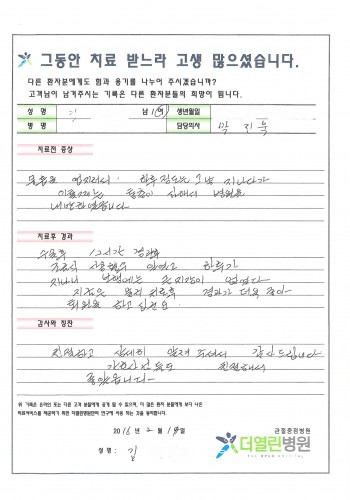 그동안 치료 받느라 고생 많으셨습니다.
다른 환자분에게도 힘과 용기를 나누어 주시겠습니까?
고객님이 남겨주시는 기록은 다른 환자분들의 희망이 됩니다.
성 명 김 남 / 여 생년월일
병 명 담당의사 박 지
치료전 증상
하루 정도는 그냥 지나다가
통증이 심해서 병원을
내방하였습니다
치료후 경과
수술후 12시간 경과후
하루가
지나니 보행에는 큰 지장이 없었다
지금은 물리 치료후 경과가 더욱 좋아
퇴원을 하고 싶어요
감사와 칭찬
친절하고 상세히 해 주셔서 감사드립니다
간호사분들도 친절해서
좋았습니다
위 기록은 온라인 또는 다른 고객 분들에게 공개 될 수 있으며, 더 많은 환자 분들에게 보다 나은
의료서비스를 제공하기 위한 더열린병원만의 연구에 사용 되는 것을 동의합니다.
2016 년 2 월 일
성 명 : 김
관절중점병원
더열린병원
THE OPEN HOSPITAL